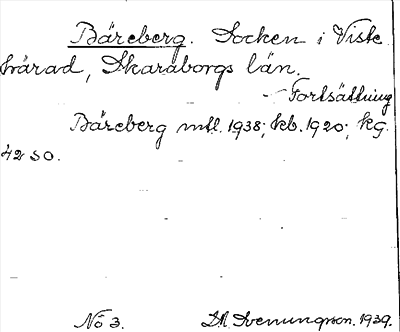 Bäreberg. Socken i Viste
härad, Skaraborgs län.
- Fortsättning
Bäreberg mtl. 1938; kb. 1920; kg.
42 SO.
No 3. Svenungsson. 1939.